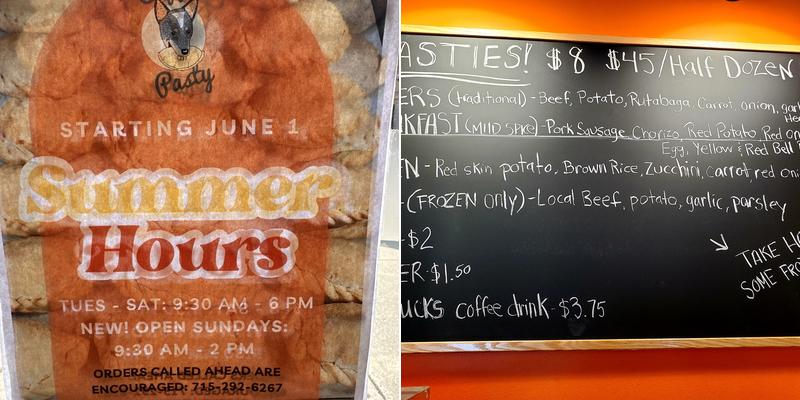 Pasty
STARTING JUNE 1
Summer
Hours
TUES - SAT: 9:30 AM - 6 PM
NEW! OPEN SUNDAYS:
9:30 AM - 2 PM
ORDERS CALLED AHEAD ARE
ENCOURAGED: 715-292-6267
ASTIES! $8 $45/Half Dozen
ERS (traditional) - Beef, Potato, Rutabaga, Carrot, onion, gar
He
KFAST (MILD SPICE) - Pork Sausage, Chorizo, Red Potato, Red On
Egg, Yellow & Red Bell
EN - Red skin potato, Brown Rice, Zucchini, carrot, red oni
- (FROZEN ONLY) - Local Beef, potato, garlic, parsley
- $2
TAKE H
ER - $1.50
SOME FRO
UCKS coffee drink - $3.75